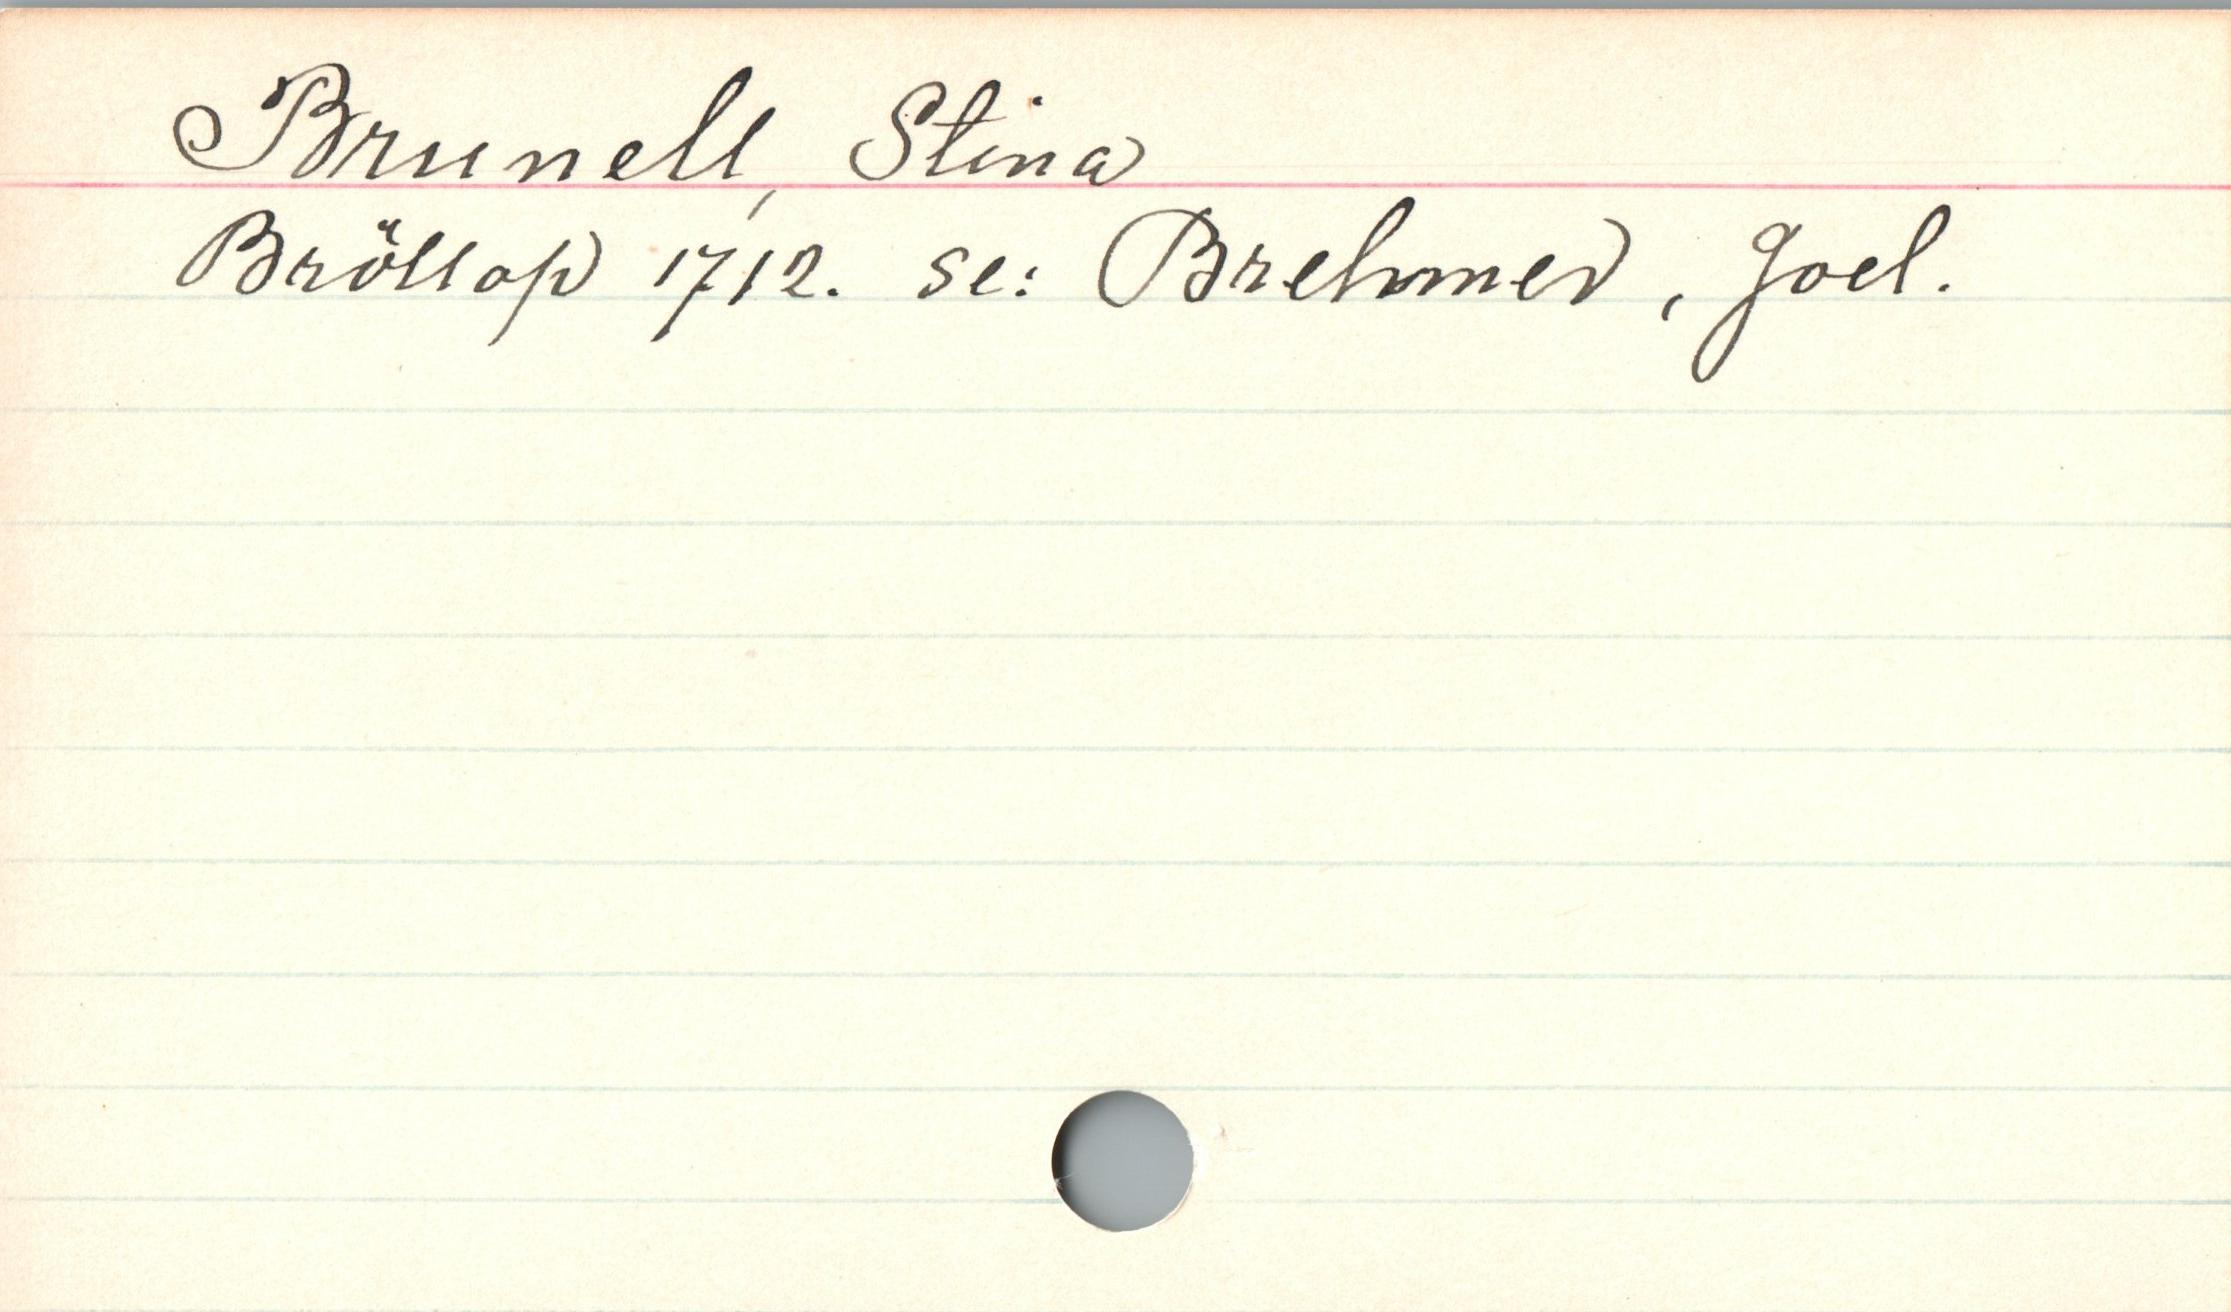 Brunell, Stina
Bröllop 1712. se: Brehmer, Joel.